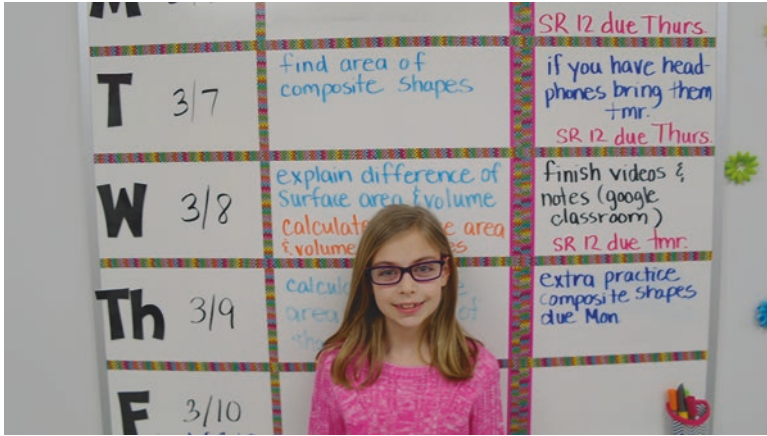 M
SR 12 due Thurs.
T 3/7
find area of
composite shapes
if you have head-
phones bring them
tmr.
SR 12 due Thurs.
W 3/8
explain difference of
Surface area & volume
calculate area
& volume
finish videos &
notes (google
classroom)
SR 12 due tmr.
Th 3/9
area of
extra practice
composite shapes
due Mon
F 3/10